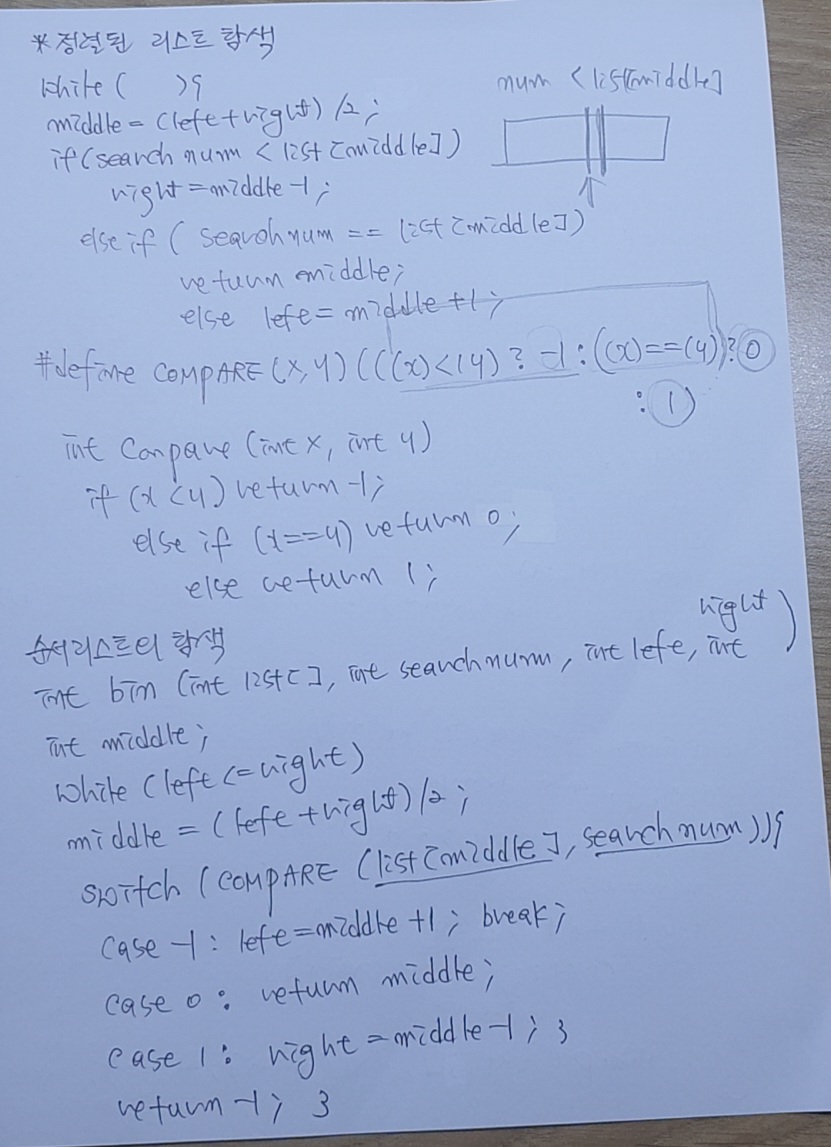 *정렬된 리스트 탐색
while ( ){
middle = (left+right) /2;
if(search num < list[middle])
right = middle -1;
num < list[middle]
else if ( searchnum == list [middle])
return middle;
else left = middle +1;
#define COMPARE (x,y) (((x)<(y) ? -1 : ((x)==(y))?0
: 1)
int Compare (int x, int y)
if (x<y) return -1;
else if (x==y) return 0;
else return 1;
순서리스트의 탐색
int bin (int list[], int searchnum, int left, int right)
int middle;
while (left <= right)
middle = (left + right) /2;
switch (COMPARE (list[middle], searchnum)){
case -1 : left = middle +1; break;
case 0 : return middle;
case 1 : right = middle -1; }
return -1; }